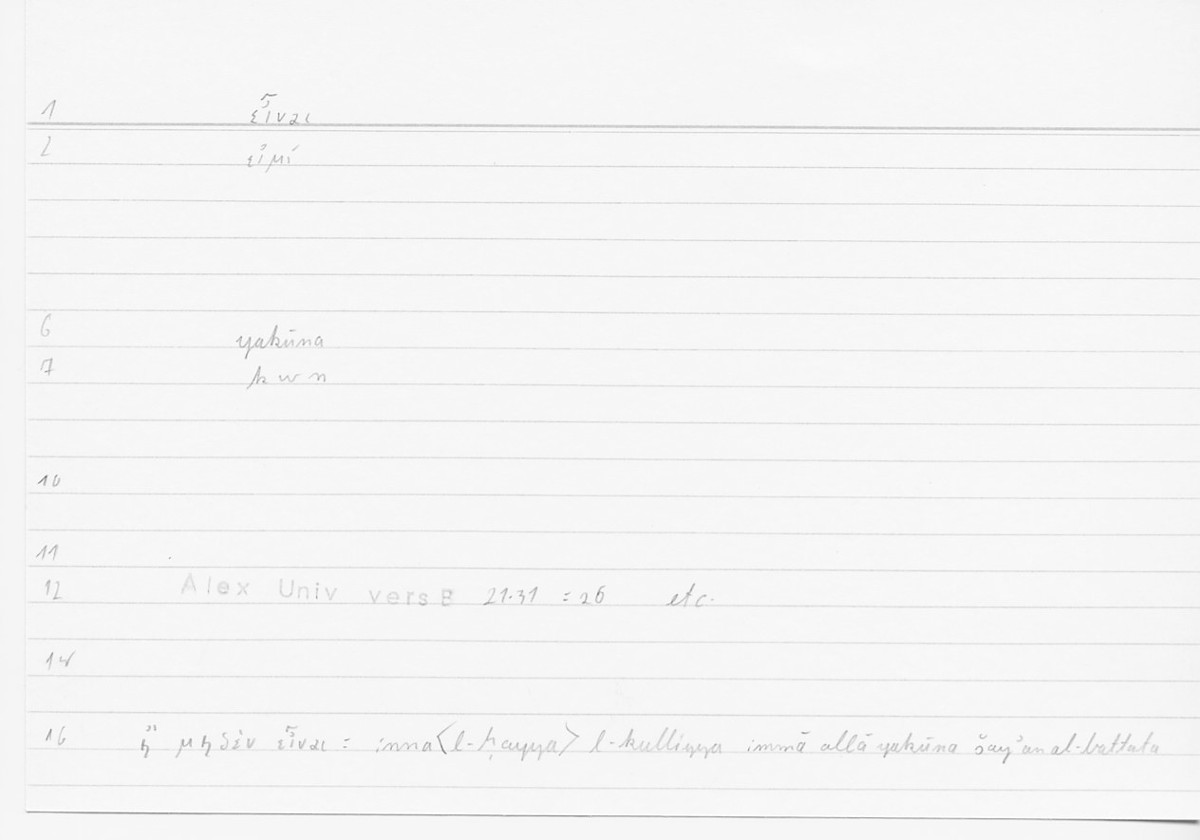 1 εἶναι
2 εἰμί
6 yakūna
7 k w n
10
11
12 Alex Univ vers B 21.31 = 26 etc.
14
16 ἢ μηδὲν εἶναι = inna <l-ḥayya> l-kulliyya immā allā yakūna šayʾan al-battata